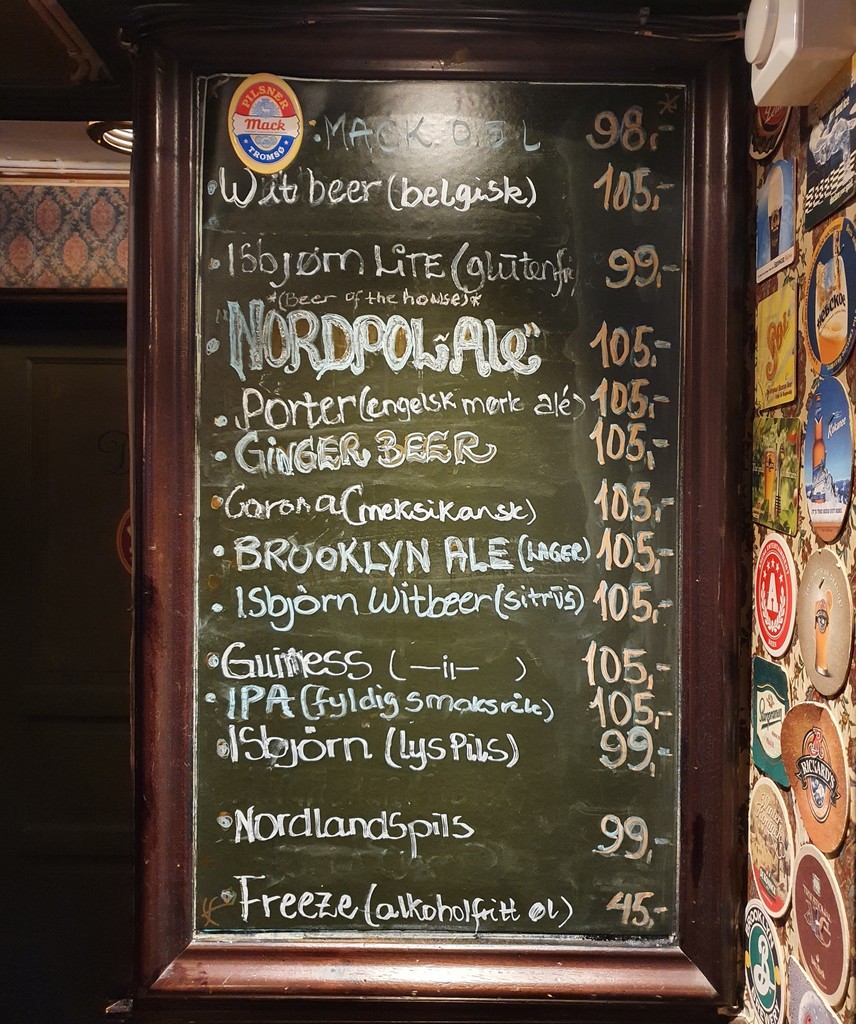 PILSNER
Mack
TROMSØ
• MACK 0.5 L 98,-
• Wit beer (belgisk) 105,-
• Isbjørn LiTE (glutenfri 99,-
*(Beer of the house)*
• "NORDPOL-Ale" 105,-
• Porter (engelsk mørk alé) 105,-
• GiNGER BEER 105,-
• Corona (meksikansk) 105,-
• BROOKLYN ALE (LAGER) 105,-
• Isbjörn Witbeer (sitrus) 105,-
• Guinness (—ıı—) 105,-
• IPA (fyldig smaksrik) 105,-
• Isbjörn (lys Pils) 99,-
• Nordlandspils 99,-
• Freeze (alkoholfritt øl) 45,-
Sol
Kokanee
A
RICKARD'S
BROOKLYN
B